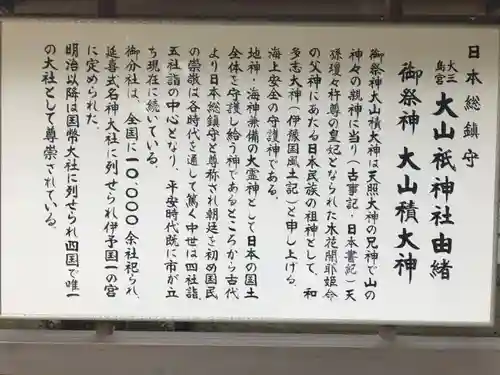 日本総鎮守
大三島宮
大山祇神社由緒
御祭神 大山積大神
御祭神大山積大神は天照大神の兄神で山の
神々の親神に当り(古事記・日本書紀)天
孫瓊々杵尊の皇妃となられた木花開耶姫命
の父神にあたる日本民族の祖神として、和
多志大神(伊豫国風土記)と申し上げる。
海上安全の守護神である。
地神・海神兼備の大霊神として日本の国土
全体を守護し給う神であるところから古代
より日本総鎮守と尊称され朝廷を初め国民
の崇敬は各時代を通して篤く中世は四社詣、
五社詣の中心となり、平安時代既に市が立
ち現在に続いている。
御分社は、全国に一〇、〇〇〇余社祀られ、
延喜式名神大社に列せられ伊予国一の宮
に定められた。
明治以降は国幣大社に列せられ四国で唯一
の大社として尊崇されている。